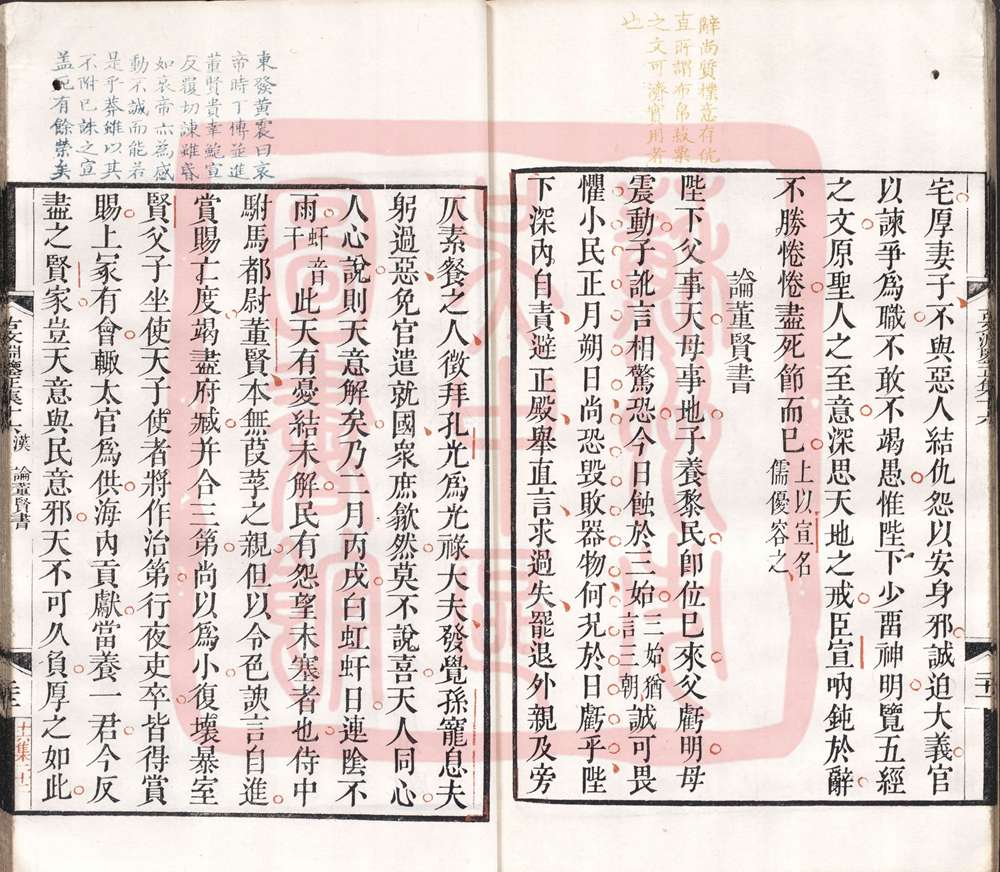 辭尚質樸意存伉
直所謂布帛菽粟
之文可濟實用者
也
宅厚妻子不與惡人結仇怨以安身邪誠迫大義官
以諫爭爲職不敢不竭愚惟陛下少畱神明覽五經
之文原聖人之至意深思天地之戒臣宣吶鈍於辭
不勝惓惓盡死節而已
上以宣名
儒優容之
論董賢書
陛下父事天母事地子養黎民卽位已來父虧明母
震動子訛言相驚恐今日蝕於三始三始猶言三朝誠可畏
懼小民正月朔日尚恐毀敗器物何況於日虧乎陛
下深內自責避正殿舉直言求過失罷退外親及旁
東發黃震曰哀
帝時丁傅並進
董賢貴幸鮑宣
反覆切諫雖昏
如哀帝亦爲感
動不誠而能若
是乎莽雖以其
不附已誅之宣
盖死有餘榮矣
仄素餐之人徵拜孔光爲光祿大夫發覺孫寵息夫
躬過惡免官遣就國衆庶歙然莫不說喜天人同心
人心說則天意解矣乃二月丙戌白虹虷日連陰不
雨虷音干此天有憂結未解民有怨望未塞者也侍中
駙馬都尉董賢本無葭莩之親但以令色諛言自進
賞賜亡度竭盡府臧幷合三第尚以爲小復壞暴室
賢父子坐使天子使者將作治第行夜吏卒皆得賞
賜上冡有會輙太官爲供海內貢獻當養一君今反
盡之賢家豈天意與民意邪天不可久負厚之如此
古文淵鑒正集 漢 論董賢書